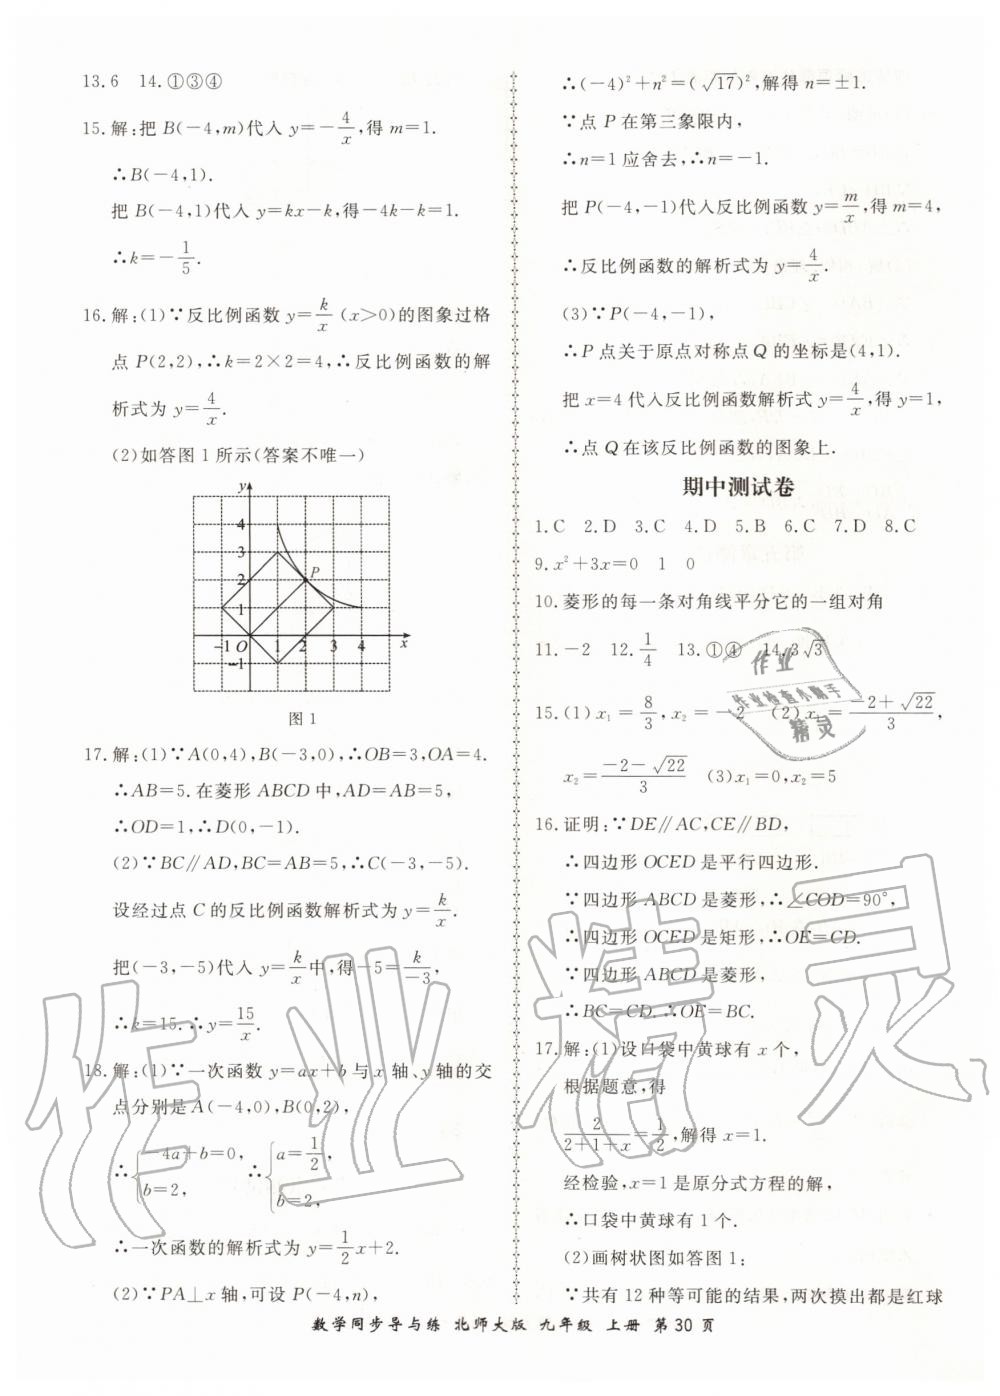 13.6　14.①③④
15.解:把 B(－4,m)代入 y=－4/x,得 m=1.
∴B(－4,1).
把 B(－4,1)代入 y=kx－k,得－4k－k=1.
∴k=－1/5.
16.解:(1)∵反比例函数 y=k/x (x>0)的图象过格
点 P(2,2),∴k=2×2=4,∴反比例函数的解
析式为 y=4/x.
(2)如答图 1 所示(答案不唯一)
y
4
3
2
1
P
－1 O 1 2 3 4 x
－1
图 1
17.解:(1)∵A(0,4),B(－3,0),∴OB=3,OA=4.
∴AB=5.在菱形 ABCD 中,AD=AB=5,
∴OD=1,∴D(0,－1).
(2)∵BC∥AD,BC=AB=5,∴C(－3,－5).
设经过点 C 的反比例函数解析式为 y=k/x.
把(－3,－5)代入 y=k/x中,得－5=k/－3,
∴k=15.∴y=15/x.
18.解:(1)∵一次函数 y=ax+b 与 x 轴、y 轴的交
点分别是 A(－4,0),B(0,2),
∴{－4a+b=0, b=2, ∴{a=1/2, b=2,
∴一次函数的解析式为 y=1/2x+2.
(2)∵PA⊥x 轴,可设 P(－4,n),
∴(－4)²+n²=(√17)²,解得 n=±1.
∵点 P 在第三象限内,
∴n=1 应舍去,∴n=－1.
把 P(－4,－1)代入反比例函数 y=m/x,得 m=4,
∴反比例函数的解析式为 y=4/x.
(3)∵P(－4,－1),
∴P 点关于原点对称点 Q 的坐标是(4,1).
把 x=4 代入反比例函数解析式 y=4/x,得 y=1,
∴点 Q 在该反比例函数的图象上.
期中测试卷
1.C　2.D　3.C　4.D　5.B　6.C　7.D　8.C
9.x²+3x=0　1　0
10.菱形的每一条对角线平分它的一组对角
11.－2　12.1/4　13.①④　14.3√3
15.(1)x₁=8/3,x₂=－2　(2)x₁=－2+√22/3,
x₂=－2－√22/3　(3)x₁=0,x₂=5
16.证明:∵DE∥AC,CE∥BD,
∴四边形 OCED 是平行四边形.
∵四边形 ABCD 是菱形,∴∠COD=90°,
∴四边形 OCED 是矩形,∴OE=CD.
∵四边形 ABCD 是菱形,
∴BC=CD.∴OE=BC.
17.解:(1)设口袋中黄球有 x 个,
根据题意,得
2/2+1+x=1/2,解得 x=1.
经检验,x=1 是原分式方程的解,
∴口袋中黄球有 1 个.
(2)画树状图如答图 1:
∵共有 12 种等可能的结果,两次摸出都是红球
数学同步导与练 北师大版 九年级 上册 第 30 页
作业
作业检查小助手
精灵
作业精灵